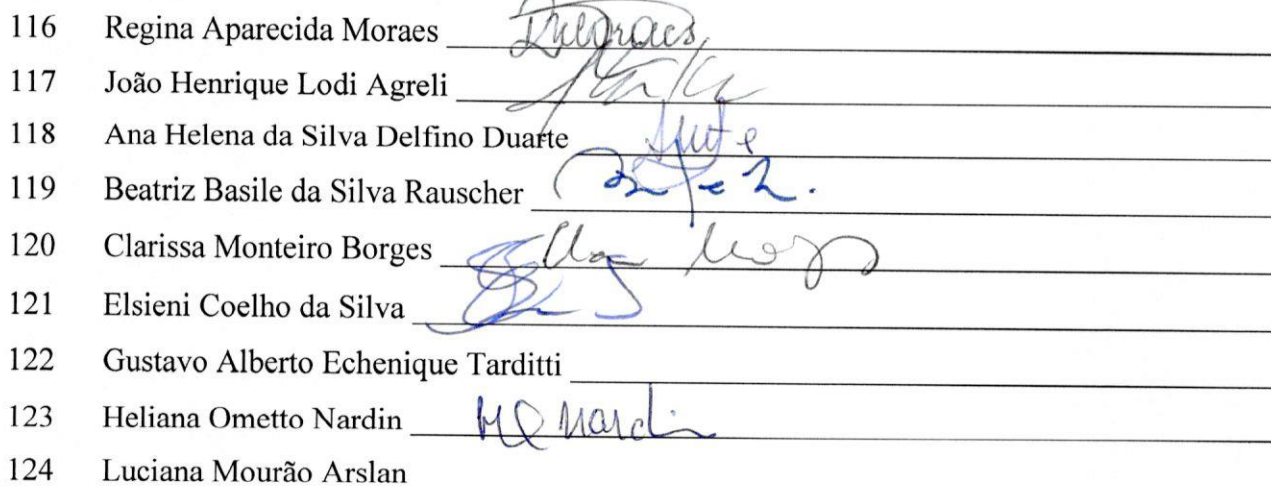 116 Regina Aparecida Moraes
117 João Henrique Lodi Agreli
118 Ana Helena da Silva Delfino Duarte
119 Beatriz Basile da Silva Rauscher
120 Clarissa Monteiro Borges
121 Elsieni Coelho da Silva
122 Gustavo Alberto Echenique Tarditti
123 Heliana Ometto Nardin HO Nardin
124 Luciana Mourão Arslan